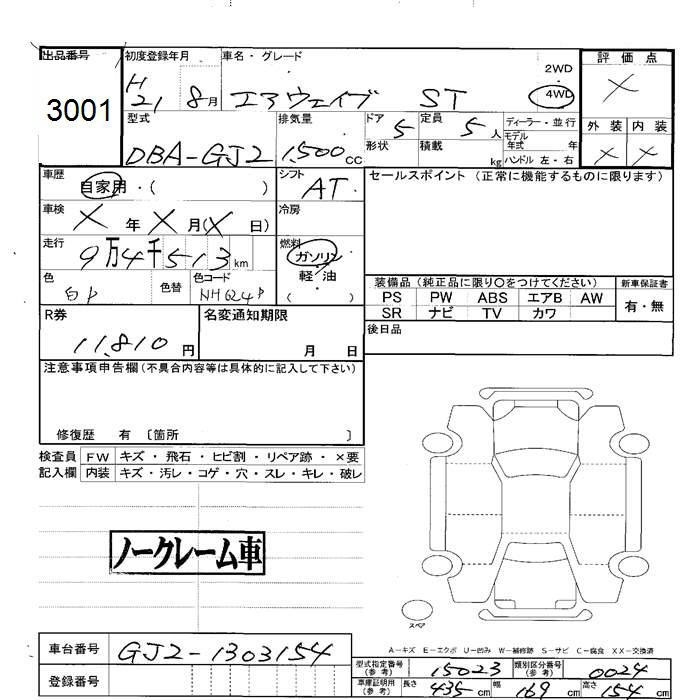 出品番号
3001
初度登録年月
H
21 8月
車名・グレード
エアウェイブ ST
2WD
4WD
評価点
×
外装 内装
× ×
型式
DBA-GJ2
排気量
1,500cc
ドア
5
形状
定員
5人
積載
kg
ディーラー・並行
モデル
年式 年
ハンドル 左・右
車歴
自家用・( )
シフト
AT
セールスポイント (正常に機能するものに限ります)
車検
×年×月(×日)
冷房
走行
9万4千513km
燃料
ガソリン
軽・油
( )
色
白P
色替
色コード
NH624P
装備品 (純正品に限り〇をつけてください)
新車保証書
PS PW ABS エアB AW
有・無
SR ナビ TV カワ
R券
11,810円
名変通知期限
月 日
後日品
注意事項申告欄(不具合内容等は具体的に記入して下さい)
修復歴 有 〔箇所 〕
検査員 FW キズ・飛石・ヒビ割・リペア跡・×要
記入欄 内装 キズ・汚レ・コゲ・穴・スレ・キレ・破レ
ノークレーム車
スペア
A-キズ E-エクボ U-凹み W-補修跡 S-サビ C-腐食 XX-交換済
車台番号
GJ2-1303154
登録番号
型式指定番号
(参考)
15023
類別区分番号
(参考)
0024
車庫証明用
(参考)
長さ 435cm 幅 169cm 高さ 154cm